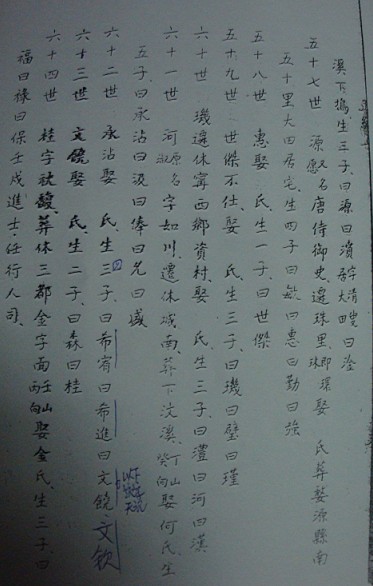 溪下塢生三子曰源曰濵字清叟曰淦
五十七世 源名愿唐侍御史遷珠里即環珠娶 氏葬婺源縣南
五十里大田居宅生四子曰敏曰惠曰勤曰強
五十八世 惠娶 氏生一子曰世傑
五十九世 世傑不仕娶 氏生三子曰璣曰璧曰瑾
六十世 璣遷休寧西鄉資村娶 氏生三子曰澧曰河曰漢
六十一世 河 字如川遷休城南葬下汶溪癸山丁向娶何氏生
五子曰承沾曰汲曰俸曰允曰 
六十二世 承沾娶 氏生三子曰希宥曰希進曰文饒 文欽
六十三世 文饒娶 氏生二子曰森曰桂
六十四世 桂字 葬休三都金字面壬山丙向娶金氏生三子曰
福曰祿曰保壬戌進士任行人司